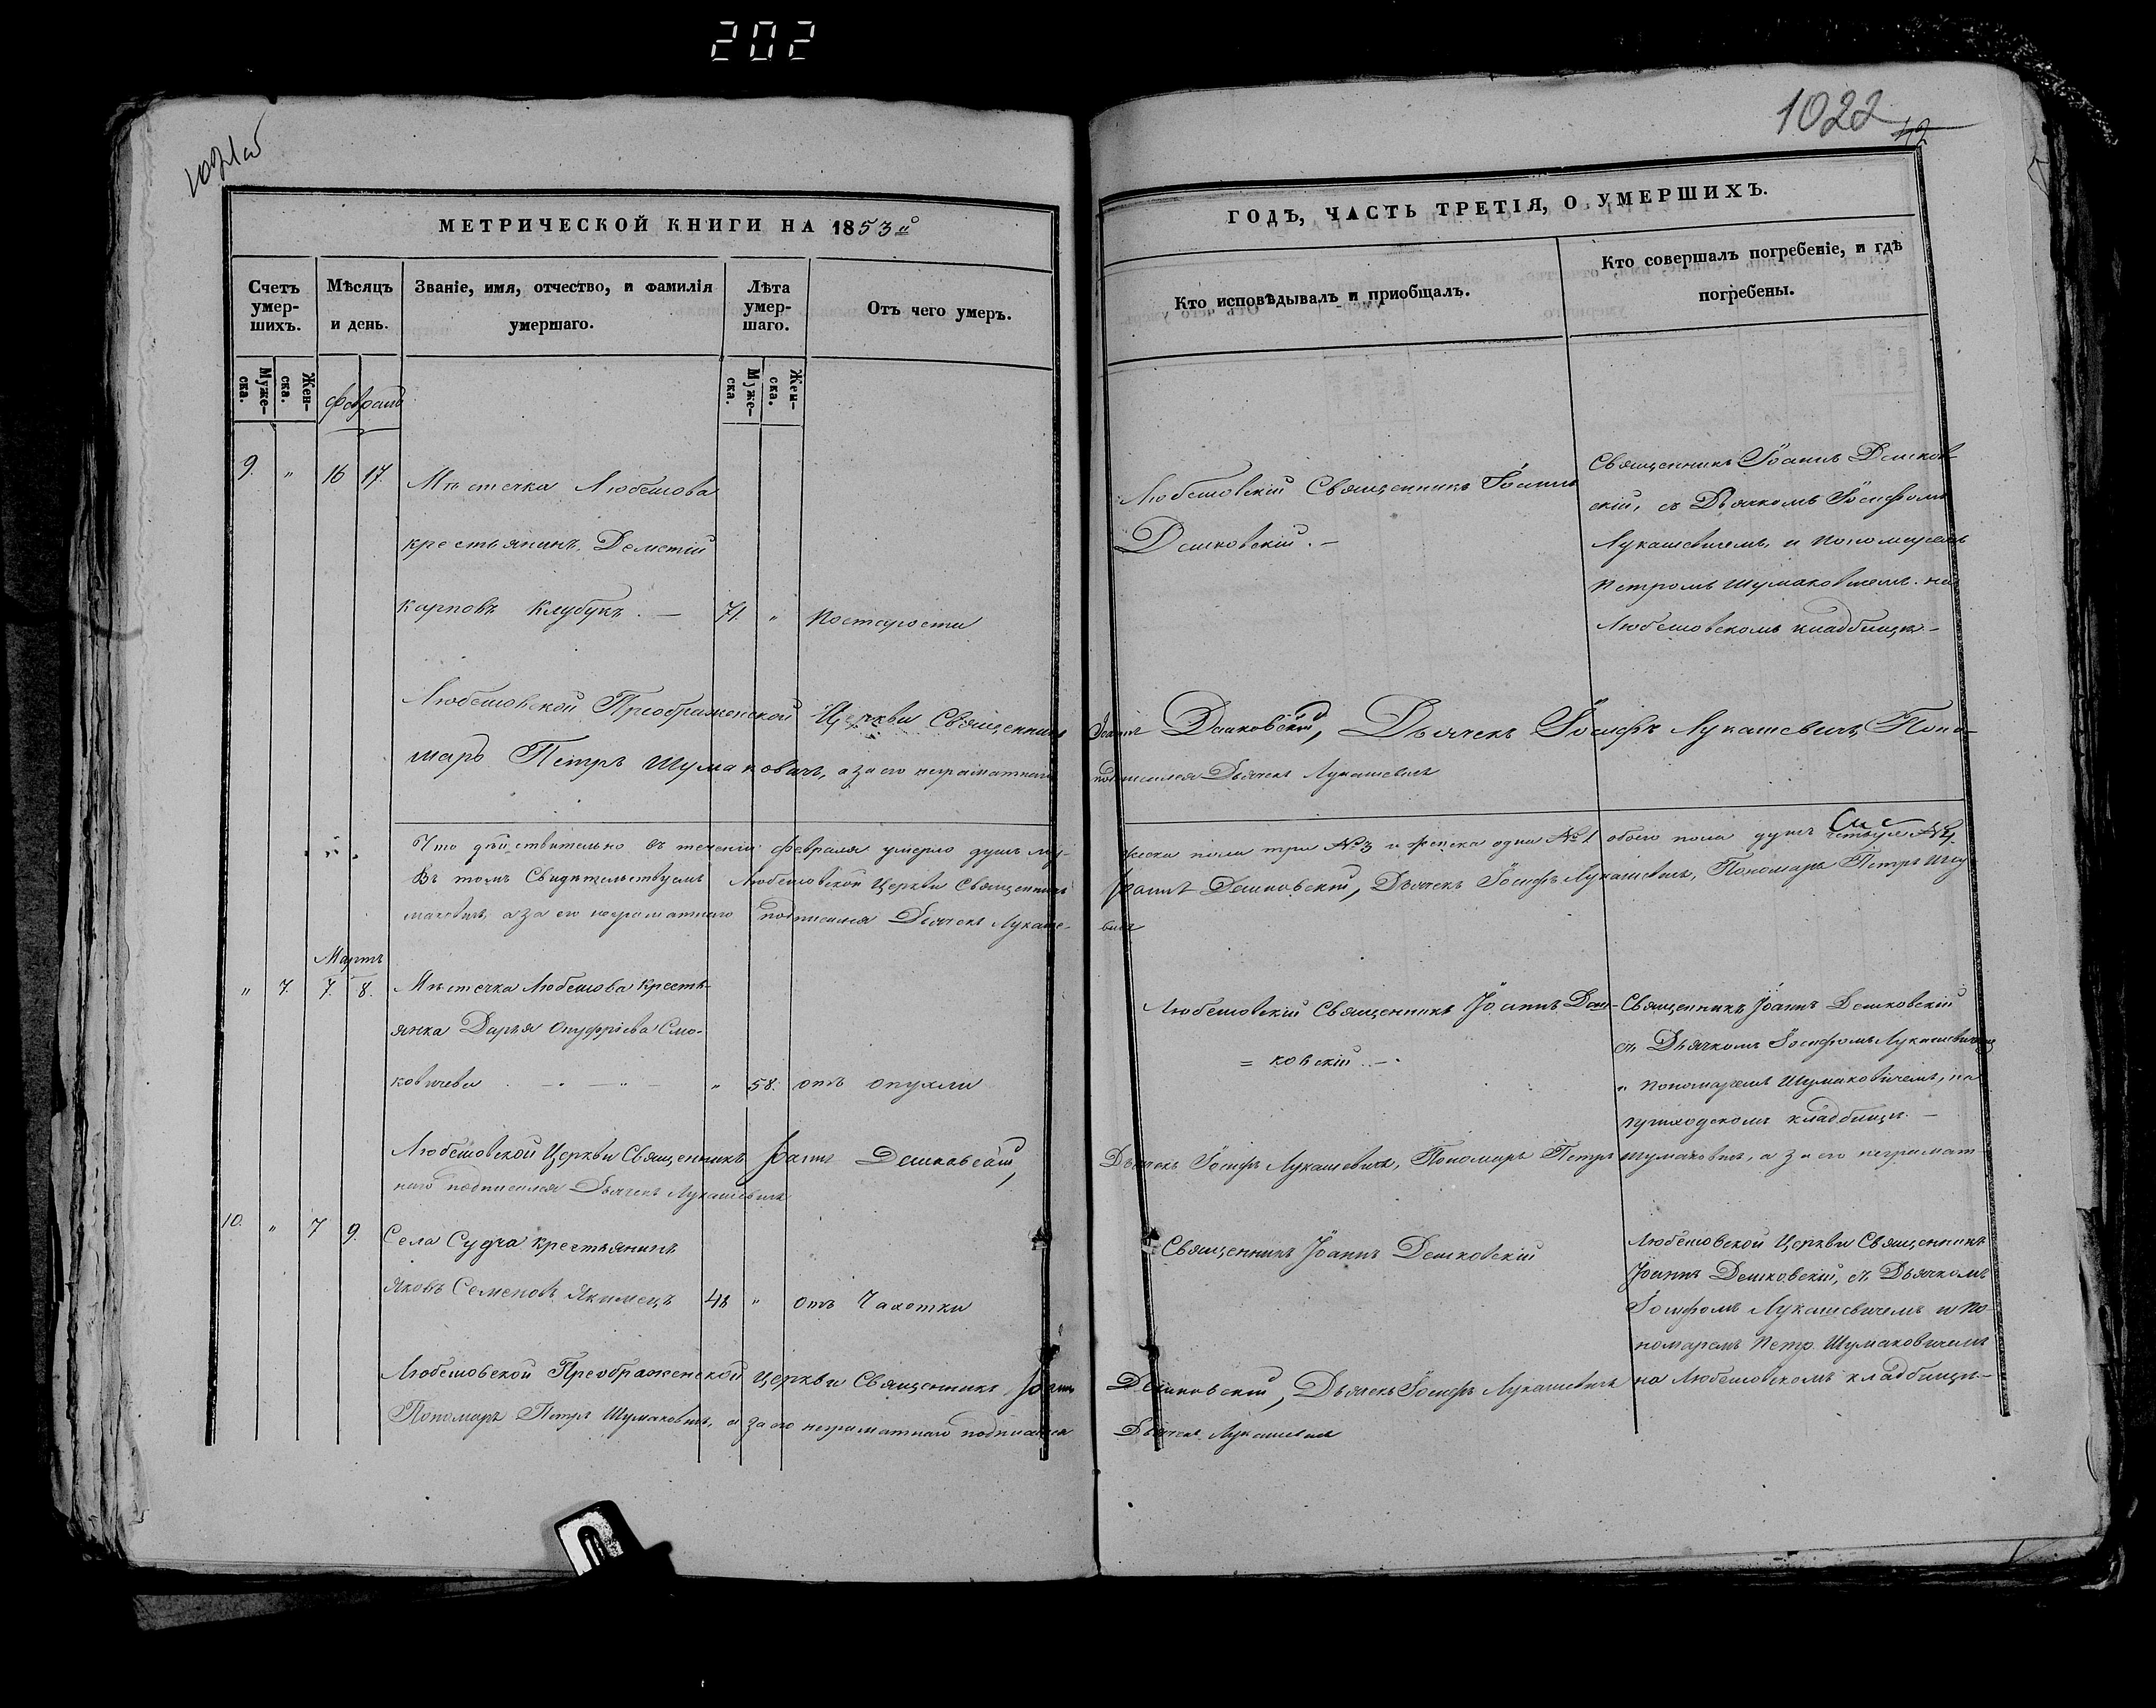 202
1021об
1022
42
МЕТРИЧЕСКОЙ КНИГИ НА 1853й
ГОДЪ, ЧАСТЬ ТРЕТІЯ, О УМЕРШИХЪ.
Счетъ умер-
шихъ.
Мѣсяцъ
и день.
Званіе, имя, отчество, и фамилія
умершаго.
Лѣта
умер-
шаго.
Отъ чего умеръ.
Кто исповѣдывалъ и пріобщалъ.
Кто совершалъ погребеніе, и гдѣ
погребены.
Муже-
ска.
Жен-
ска.
Муже-
ска.
Жен-
ска.
Февраль
9. " 16 17.
Мѣстечка Любешова
крестьянинъ,
Карповъ Клубукъ. —
71. "
По старости
Любешовскій Священникъ Іоаннъ
Дешковскій. –
Священникъ Іоаннъ Дешков-
скій, съ Дьячкомъ Іосифомъ
Лукашевичемъ, и Пономаремъ
Петромъ Шумаковичемъ. на
Любешовскомъ кладбищѣ –
Любешовской Преображенской Церкви Священникъ Іоаннъ Дешковскій, Дьячекъ Іосифъ Лукашевичъ, Поно-
марь Петръ Шумаковичъ, а за его неграматнаго подписался Дьячекъ Лукашевичъ
Что дѣйствительно въ теченіи февраля умерло душъ му-
жеска пола три №3 и женска одна №1 обоего пола душъ четыре №4.
Въ томъ Свидѣтельствуемъ Любешовской Церкви Священникъ Іоаннъ Дешковскій, Дьячекъ Іосифъ Лукашевичъ, Пономарь Петръ Шу-
маковичъ, а за его неграматнаго подписался Дьячекъ Лукаше-
вичъ
Мартъ
" 7. 7. 8.
Мѣстечка Любешова Кресть-
янка Дарья Онуфріева Смо-
ковичева
" 58.
отъ опухли
Любешовскій Священникъ Іоаннъ Деш-
= ковскій. –
Священникъ Іоаннъ Дешковскій
съ Дьячкомъ Іосифомъ Лукашевичемъ
и Пономаремъ Шумаковичемъ, на
приходскомъ кладбищѣ. –
Любешовской Церкви Священникъ Іоаннъ Дешковскій, Дьячекъ Іосифъ Лукашевичъ, Пономарь Петръ Шумаковичъ, а за его неграмат-
наго подписался Дьячекъ Лукашевичъ
10. " 7 9.
Села Судча крестьянинъ
Яковъ Семеновъ Якимецъ
48 "
отъ Чахотки
Священникъ Іоаннъ Дешковскій
Любешовской Церкви Священникъ
Іоаннъ Дешковскій, съ Дьячкомъ
Іосифомъ Лукашевичемъ и По-
номаремъ Петр. Шумаковичемъ
на Любешовскомъ кладбищѣ –
Любешовской Преображенской Церкви Священникъ Іоаннъ Дешковскій, Дьячекъ Іосифъ Лукашевичъ
Пономарь Петръ Шумаковичъ, а за его неграматнаго подписался Дьячекъ Лукашевичъ